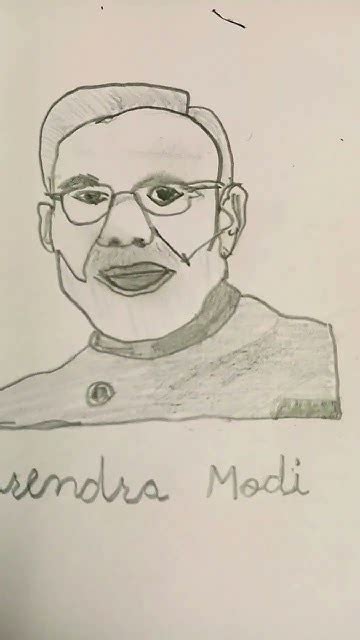 arendra Modi